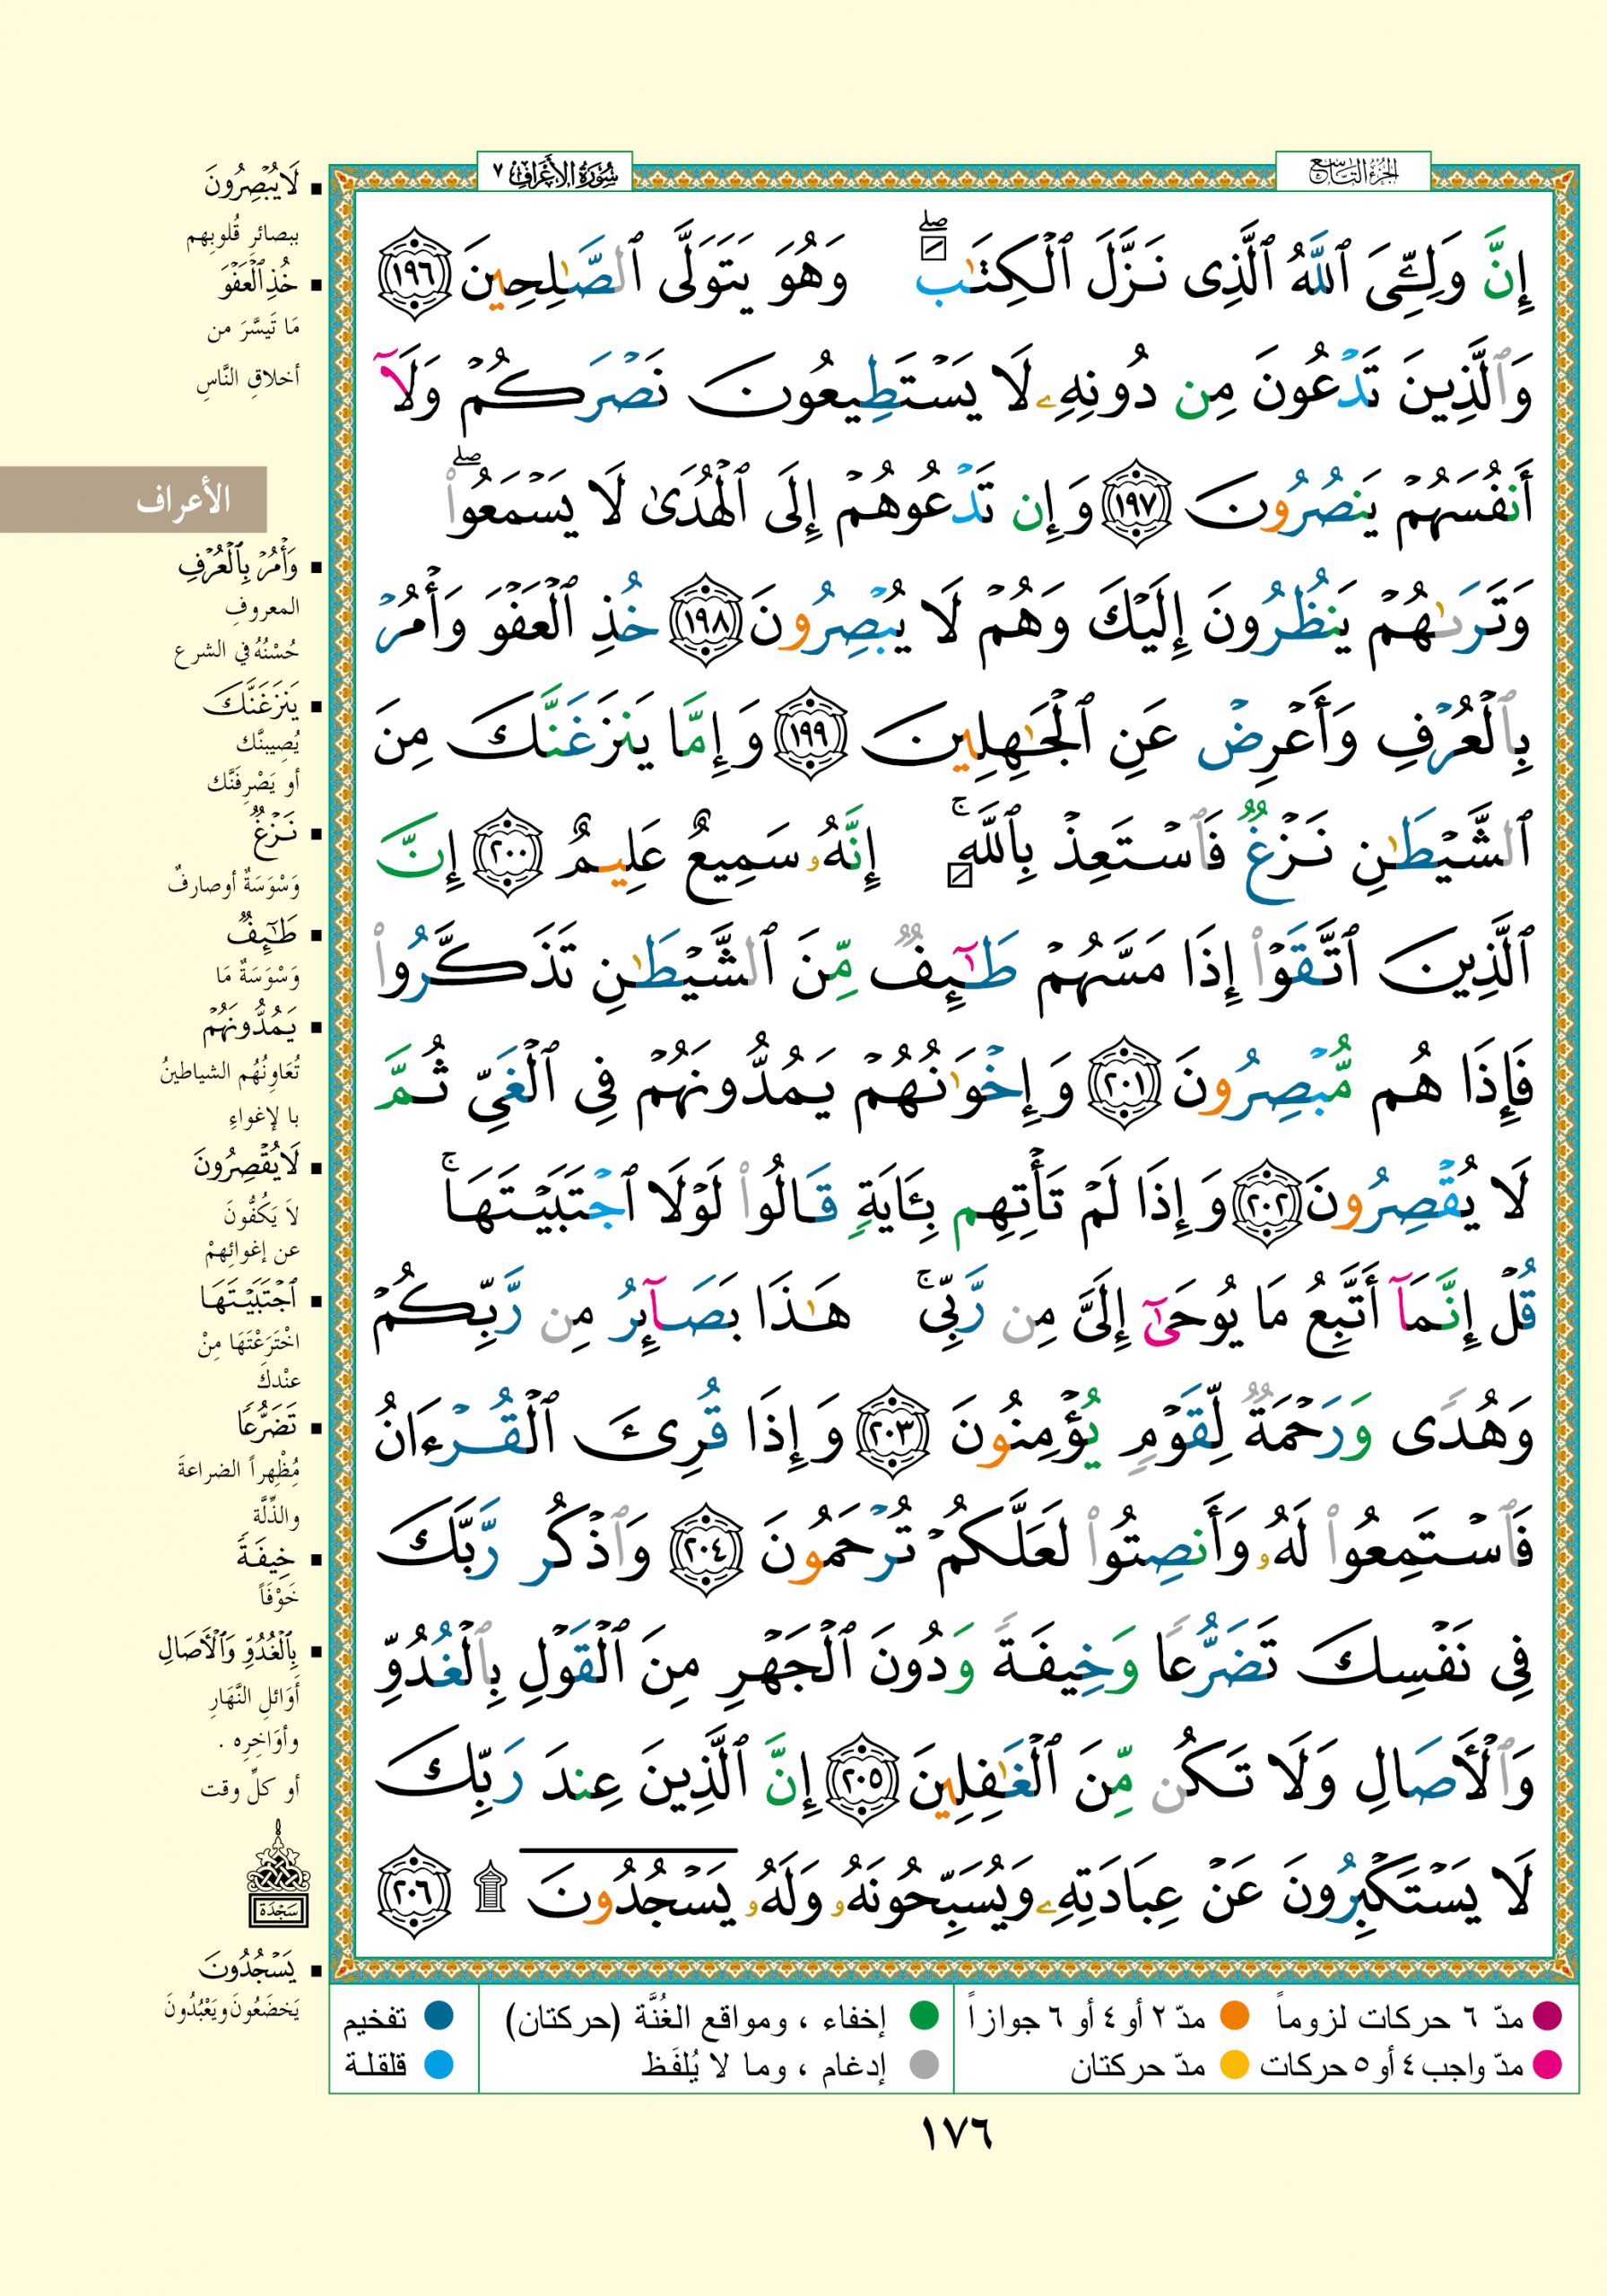 الجزء التاسع
سورة الأعراف ٧
إِنَّ وَلِـِّۧىَ ٱللَّهُ ٱلَّذِى نَزَّلَ ٱلْكِتَـٰبَ ۖ وَهُوَ يَتَوَلَّى ٱلصَّـٰلِحِينَ ١٩٦
وَٱلَّذِينَ تَدْعُونَ مِن دُونِهِۦ لَا يَسْتَطِيعُونَ نَصْرَكُمْ وَلَآ
أَنفُسَهُمْ يَنصُرُونَ ١٩٧ وَإِن تَدْعُوهُمْ إِلَى ٱلْهُدَىٰ لَا يَسْمَعُوا۟ ۖ
وَتَرَىٰهُمْ يَنظُرُونَ إِلَيْكَ وَهُمْ لَا يُبْصِرُونَ ١٩٨ خُذِ ٱلْعَفْوَ وَأْمُرْ
بِٱلْعُرْفِ وَأَعْرِضْ عَنِ ٱلْجَـٰهِلِينَ ١٩٩ وَإِمَّا يَنزَغَنَّكَ مِنَ
ٱلشَّيْطَـٰنِ نَزْغٌ فَٱسْتَعِذْ بِٱللَّهِ ۚ إِنَّهُۥ سَمِيعٌ عَلِيمٌ ٢٠٠ إِنَّ
ٱلَّذِينَ ٱتَّقَوْا۟ إِذَا مَسَّهُمْ طَـٰٓئِفٌ مِّنَ ٱلشَّيْطَـٰنِ تَذَكَّرُوا۟
فَإِذَا هُم مُّبْصِرُونَ ٢٠١ وَإِخْوَٰنُهُمْ يَمُدُّونَهُمْ فِى ٱلْغَىِّ ثُمَّ
لَا يُقْصِرُونَ ٢٠٢ وَإِذَا لَمْ تَأْتِهِم بِـَٔايَةٍ قَالُوا۟ لَوْلَا ٱجْتَبَيْتَهَا ۚ
قُلْ إِنَّمَآ أَتَّبِعُ مَا يُوحَىٰٓ إِلَىَّ مِن رَّبِّى ۚ هَـٰذَا بَصَآئِرُ مِن رَّبِّكُمْ
وَهُدًى وَرَحْمَةٌ لِّقَوْمٍ يُؤْمِنُونَ ٢٠٣ وَإِذَا قُرِئَ ٱلْقُرْءَانُ
فَٱسْتَمِعُوا۟ لَهُۥ وَأَنصِتُوا۟ لَعَلَّكُمْ تُرْحَمُونَ ٢٠٤ وَٱذْكُر رَّبَّكَ
فِى نَفْسِكَ تَضَرُّعًا وَخِيفَةً وَدُونَ ٱلْجَهْرِ مِنَ ٱلْقَوْلِ بِٱلْغُدُوِّ
وَٱلْـَٔاصَالِ وَلَا تَكُن مِّنَ ٱلْغَـٰفِلِينَ ٢٠٥ إِنَّ ٱلَّذِينَ عِندَ رَبِّكَ
لَا يَسْتَكْبِرُونَ عَنْ عِبَادَتِهِۦ وَيُسَبِّحُونَهُۥ وَلَهُۥ يَسْجُدُونَ ۩ ٢٠٦
لَا يُبْصِرُونَ
ببصائرِ قُلوبِهم
خُذِ ٱلْعَفْوَ
مَا تَيسَّرَ من
أخلاقِ النَّاسِ
الأعراف
وَأْمُرْ بِٱلْعُرْفِ
المعروفِ
حُسْنُهُ في الشرع
يَنزَغَنَّكَ
يُصِيبنَّك
أو يَصْرِفَنَّك
نَزْغٌ
وَسْوَسَةٌ أوصارفٌ
طَـٰٓئِفٌ
وَسْوَسَةٌ مَا
يَمُدُّونَهُمْ
تُعَاوِنُهُم الشياطينُ
با لإغواءِ
لَا يُقْصِرُونَ
لاَ يَكُفُّونَ
عن إغوائِهِمْ
ٱجْتَبَيْتَهَا
اخْتَرَعْتَهَا مِنْ
عنْدكَ
تَضَرُّعًا
مُظْهِراً الضراعةَ
والذِّلَّة
خِيفَةً
خَوْفَاً
بِٱلْغُدُوِّ وَٱلْـَٔاصَالِ
أَوَائلِ النَّهَارِ
وأوَاخِرِه .
أو كلِّ وقت
سَجْدَة
يَسْجُدُونَ
يَخضَعُونَ ويَعْبُدُونَ
مدّ ٦ حركات لزوماً مدّ ٢ أو ٤ أو ٦ جوازاً إخفاء ، ومواقع الغُنَّة (حركتان) تفخيم
مدّ واجب ٤ أو ٥ حركات مدّ حركتان إدغام ، وما لا يُلفَظ قلقلة
١٧٦